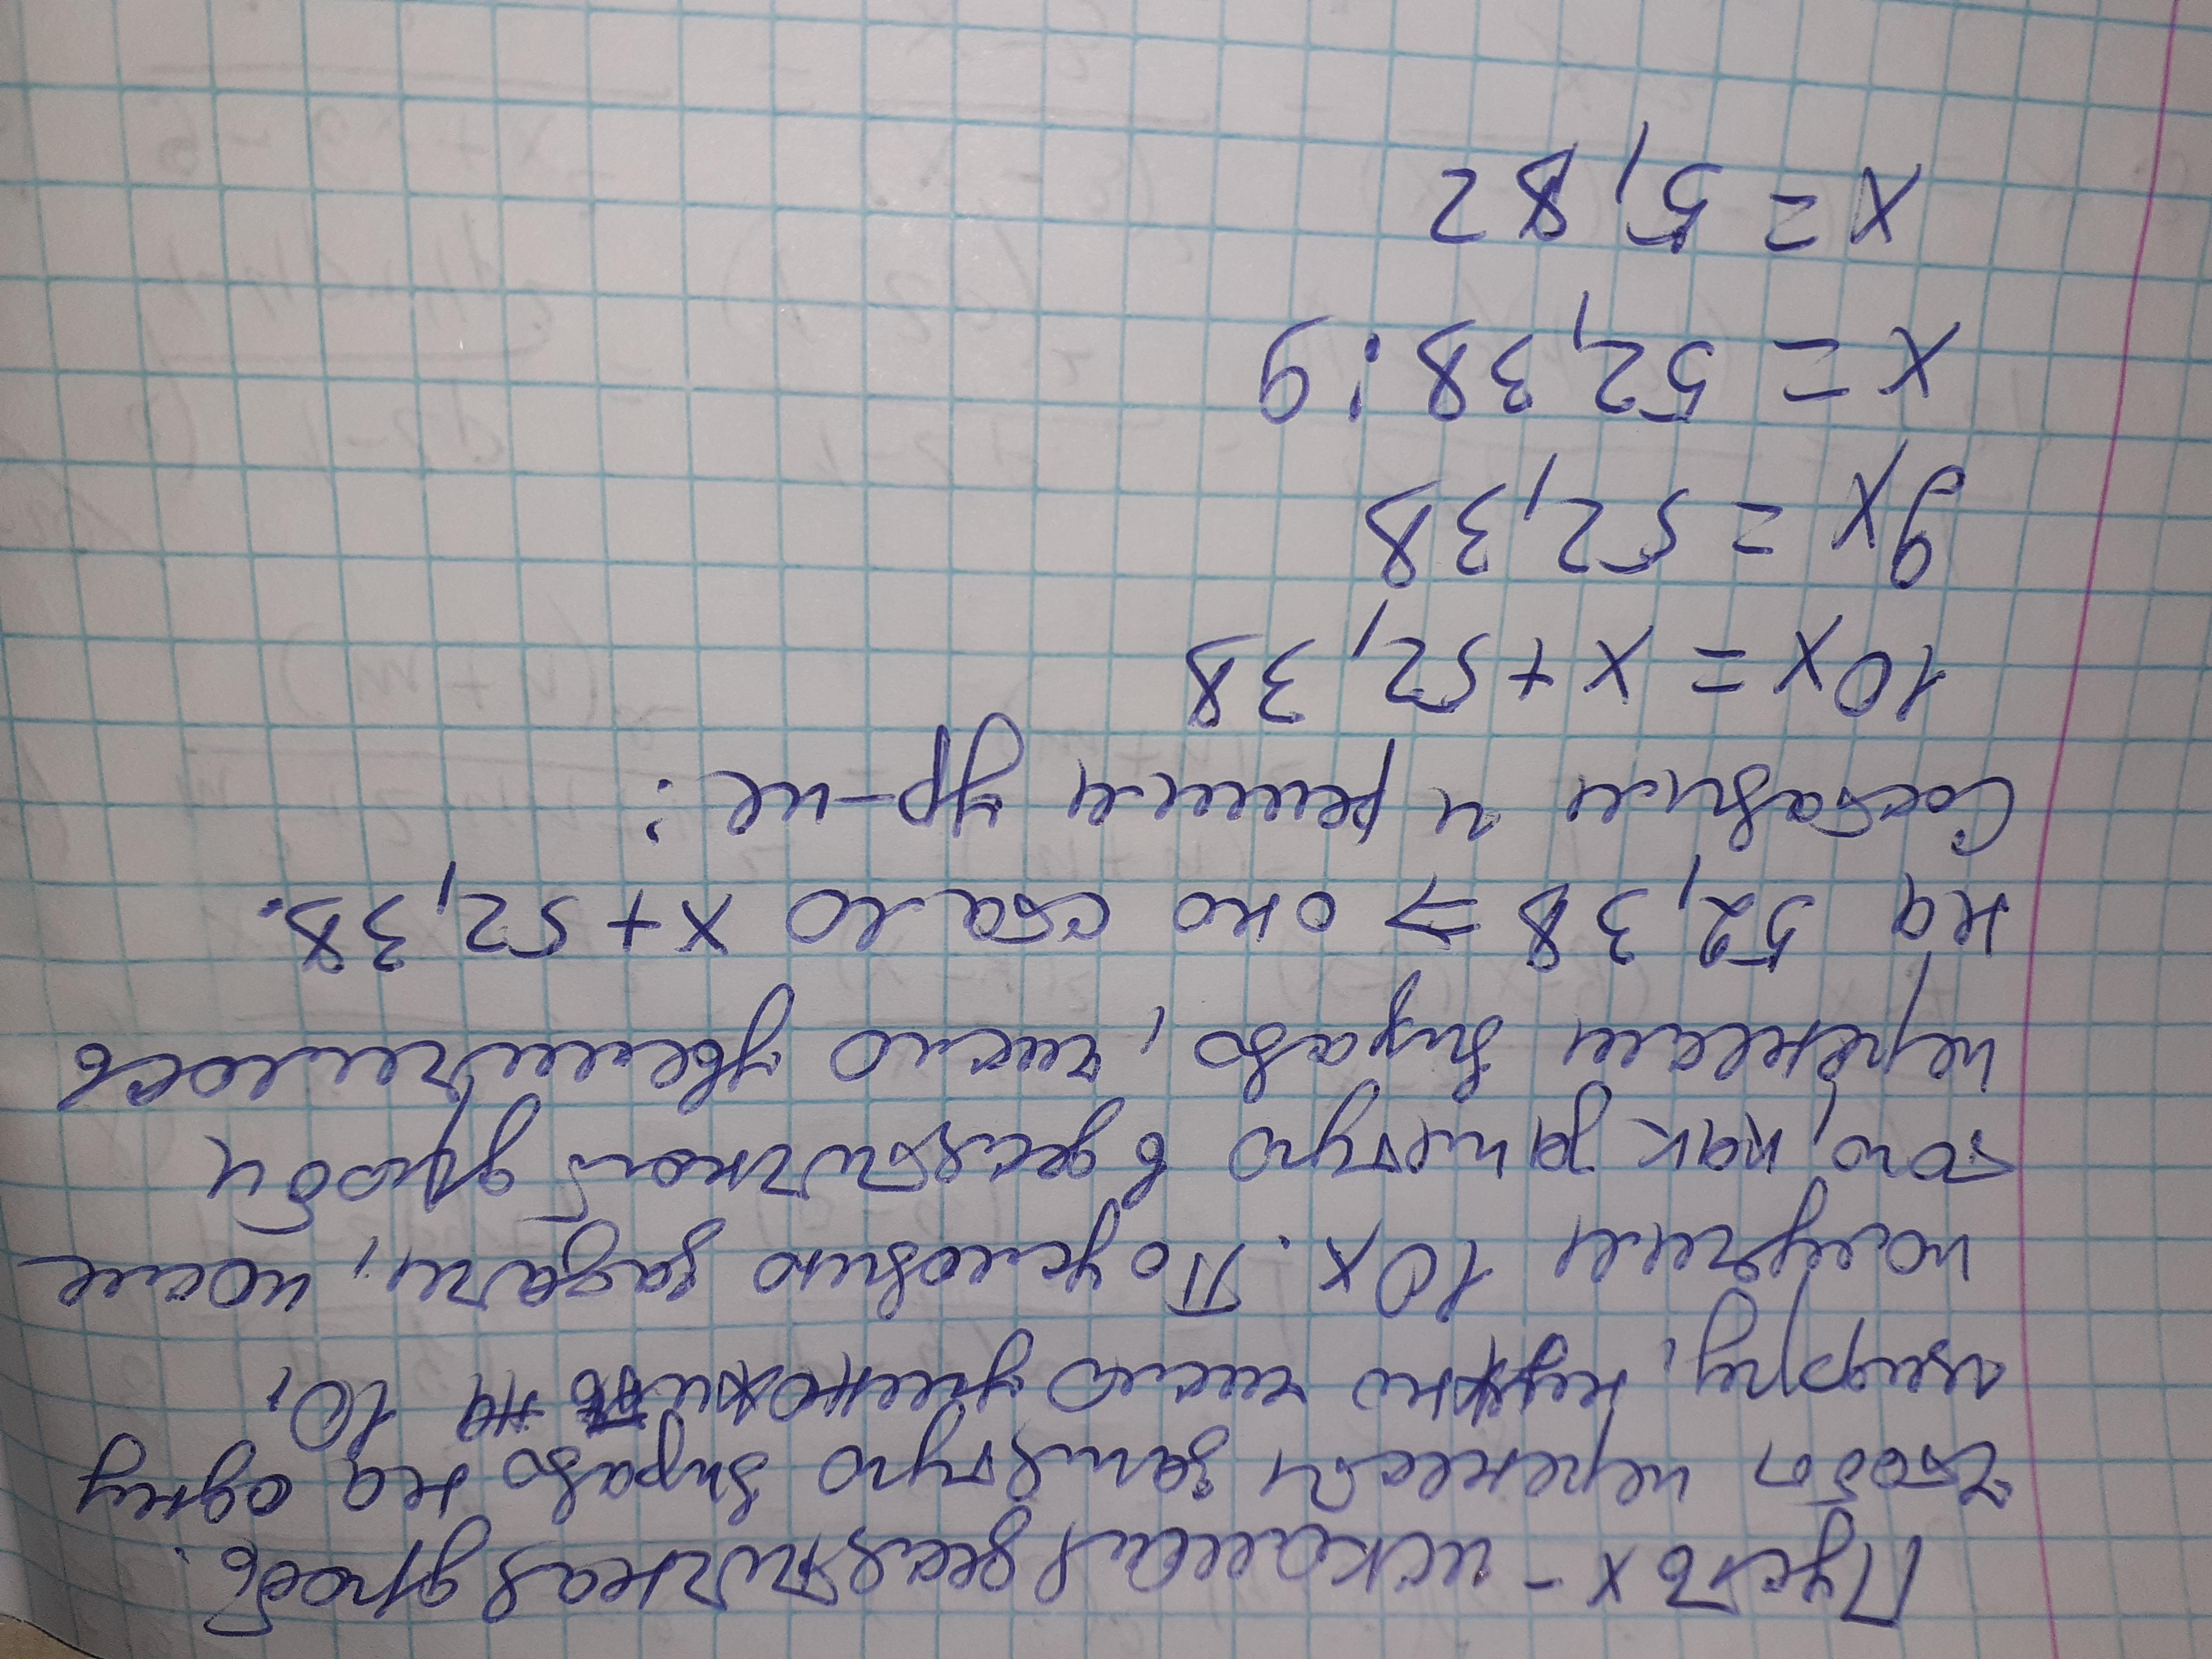 Пусть x - искомая десятичная дробь.
Чтобы перенести запятую вправо на одну
цифру, нужно число умножить на 10,
получим 10x. По условию задачи, после
того, как запятую в десятичной дроби
перенесли вправо, число увеличилось
на 52,38 ⇒ оно стало x + 52,38.
Составим и решим ур-ие:
10x = x + 52,38
9x = 52,38
x = 52,38:9
x = 5,82